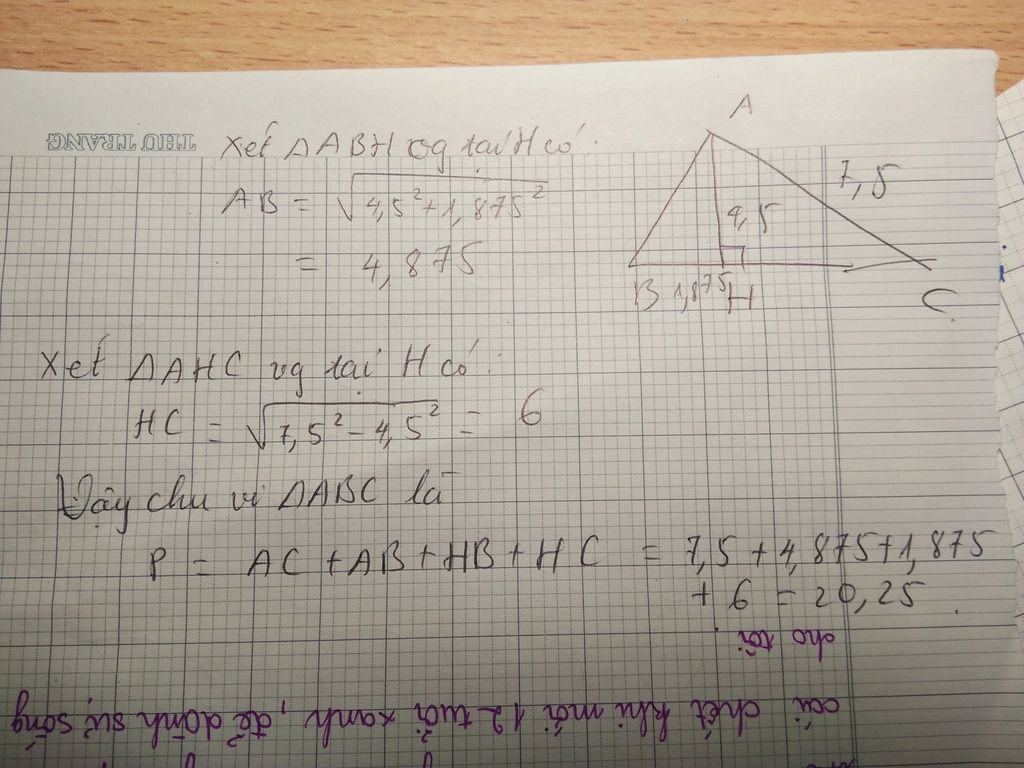 THU TRANG
Xét ΔABH vg tại H có:
AB = √4,5² + 1,875²
= 4,875
A
7,5
4,5
B 1,875 H
C
Xét ΔAHC vg tại H có:
HC = √7,5² - 4,5² = 6
Vậy chu vi ΔABC là
P = AC + AB + HB + HC = 7,5 + 4,875 + 1,875
+ 6 = 20,25
cho tôi.
cái chết khi mới 12 tuổi xanh, để dành sự sống